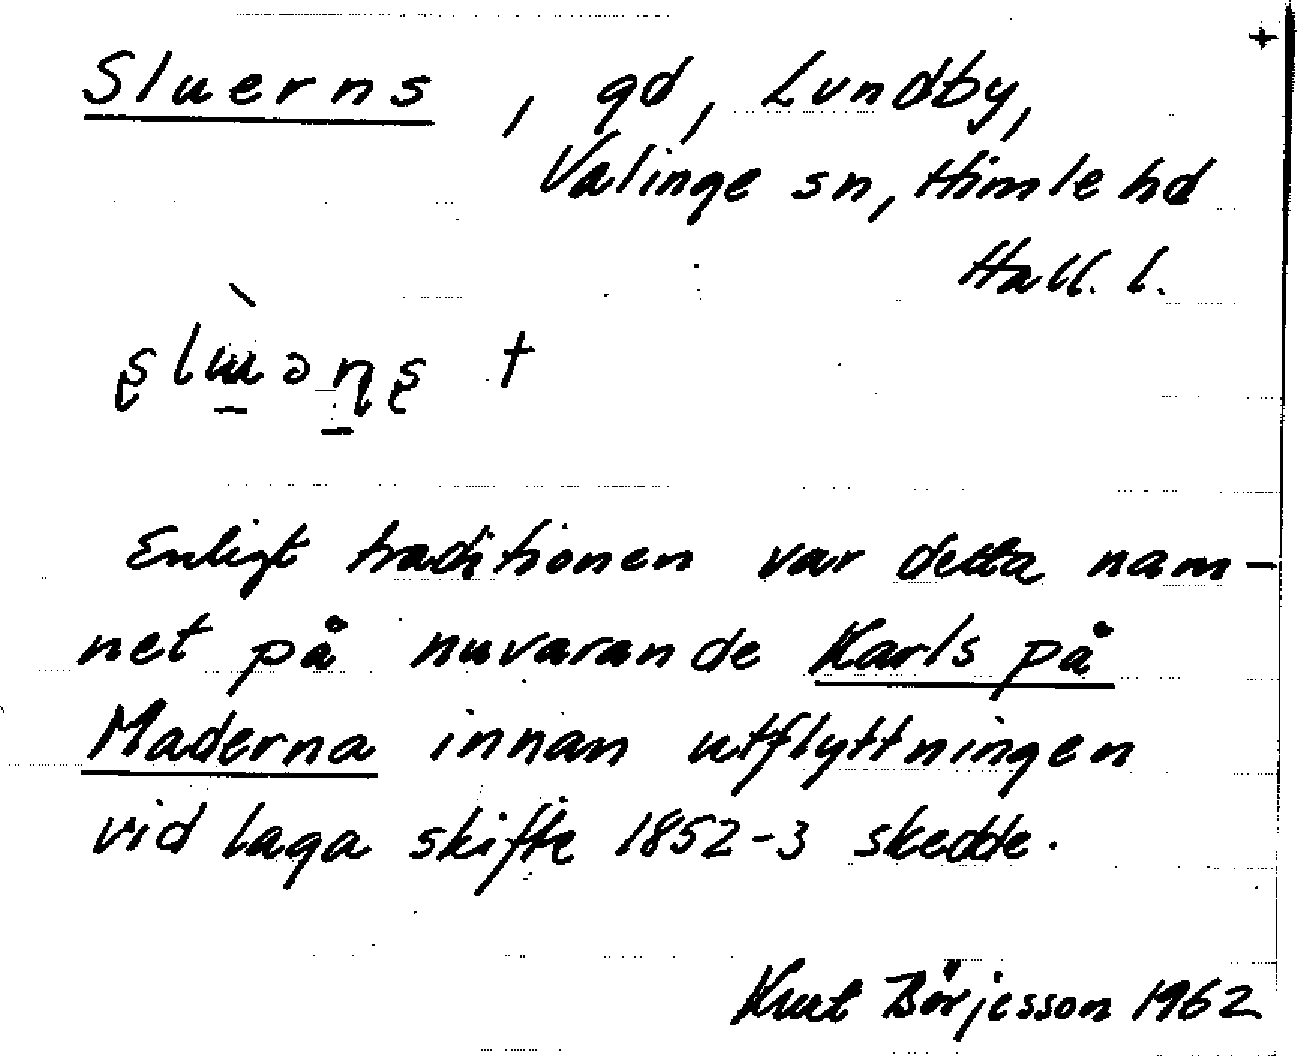 +
Sluerns, gd, Lundby,
Valinge sn, Himle hd
Hall. l.
†
Enligt traditionen var detta nam-
net på nuvarande Karls på
Maderna innan utflyttningen
vid laga skifte 1852-3 skedde.
Kurt Börjesson 1962